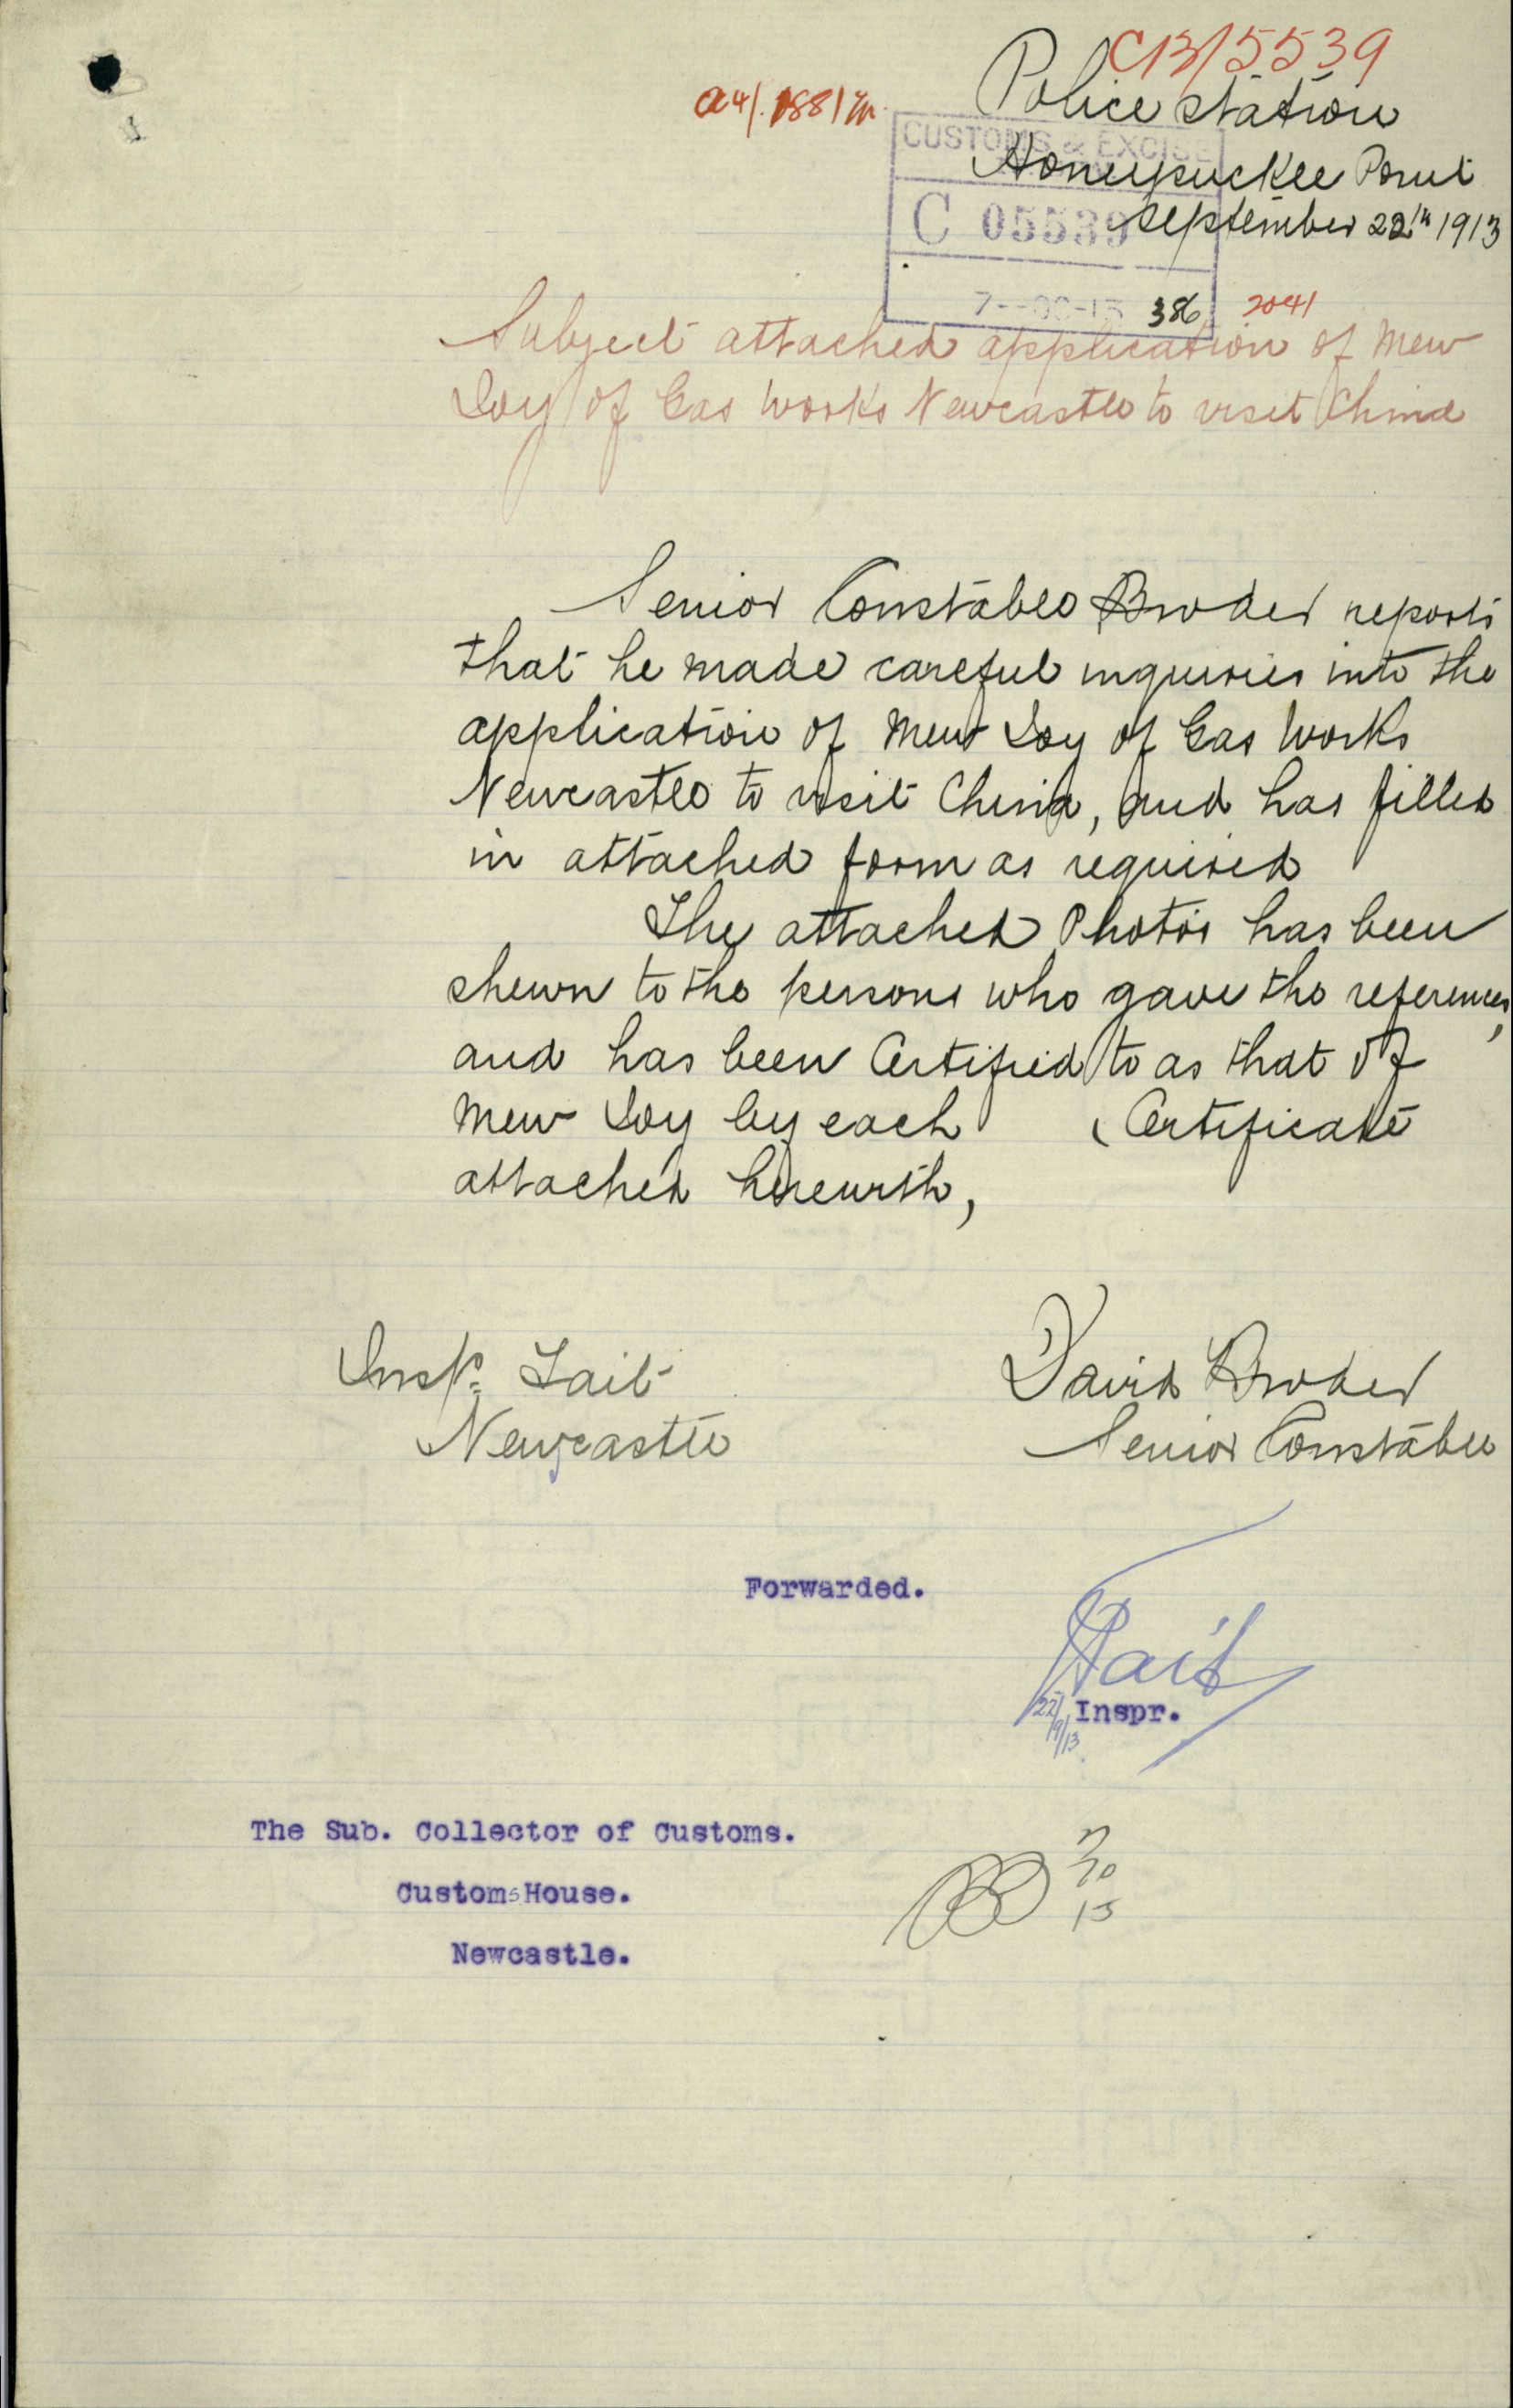 C13/5539
Police Station
Honeysuckle Point
September 22th 1913
CUSTOMS & EXCISE
C 05539
386 2041
Subject attached application of Mew
Joy of Gas Works Newcastle to visit China
Senior Constable Broder reports
that he made careful inquiries into the
application of Mew Joy of Gas Works
Newcastle to visit China, and has filled
in attached form as required
The attached Photos has been
shewn to the persons who gave the references,
and has been Certified to as that of
Mew Joy by each Certificate
attached herewith,
Inspr. Tait
Newcastle
David Broder
Senior Constable
Forwarded.
Tait
22/9/13
Inspr.
The Sub. Collector of Customs.
Customs House.
Newcastle.